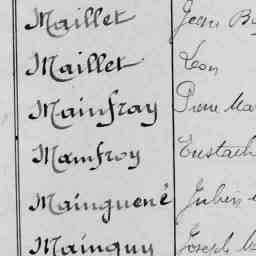 Maillet Jean
Maillet Léon
Mainfray Pierre
Mainfroy Eustach
Mainguené Julien
Mainguy Joseph